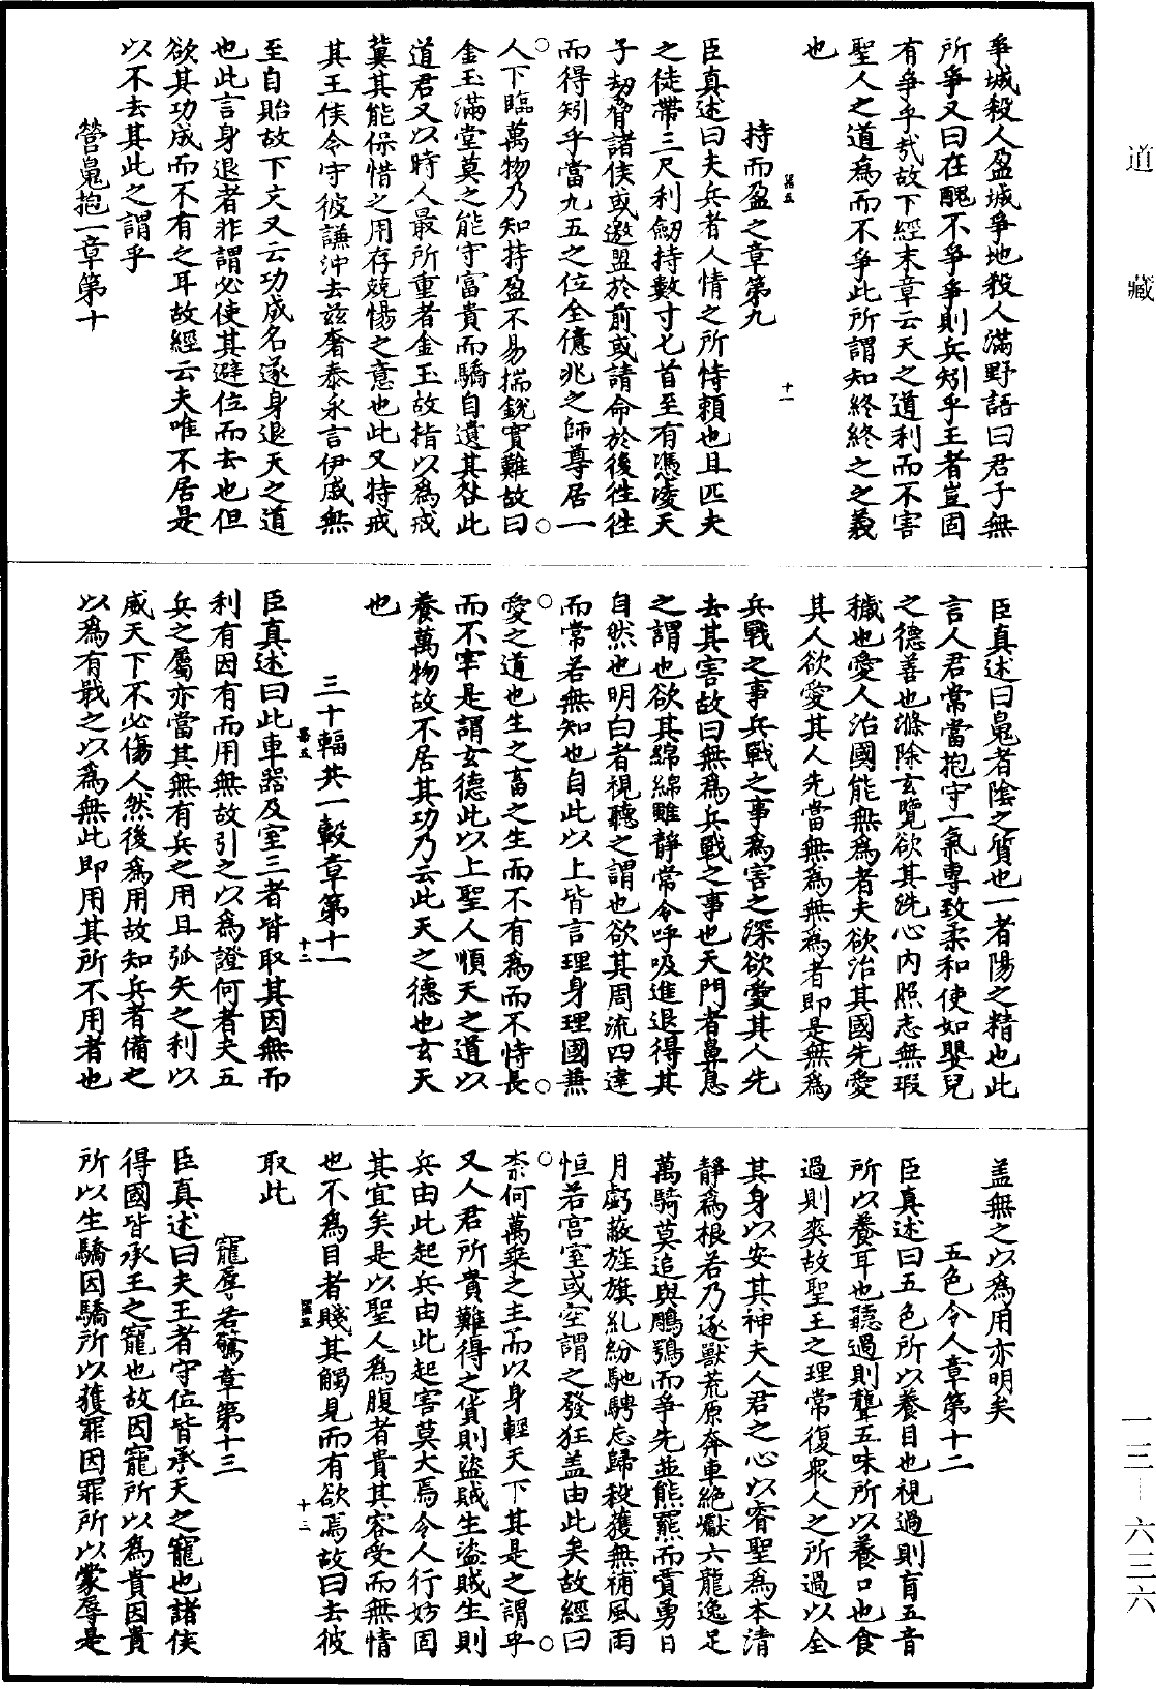 道藏
爭城殺人盈城爭地殺人滿野語曰君子無
所爭又曰在醜不爭爭則兵矧乎王者豈固
有爭乎哉故下經末章云天之道利而不害
聖人之道為而不爭此所謂知終終之之義
也
持而盈之章第九
臣真述曰夫兵者人情之所恃賴也且匹夫
之徒帶三尺利劒持數寸匕首至有憑凌天
子劫脅諸侯或邀盟於前或請命於後往往
而得矧乎當九五之位全億兆之師尊居一
人下臨萬物乃知持盈不易揣銳實難故曰
金玉滿堂莫之能守富貴而驕自遺其咎此
道君又以時人最所重者金玉故指以為戒
冀其能保惜之用存兢惕之意也此又特戒
其王侯令守彼謙沖去茲奢泰永言伊戚無
至自貽故下文又云功成名遂身退天之道
也此言身退者非謂必使其避位而去也但
欲其功成而不有之耳故經云夫唯不居是
以不去其此之謂乎
營䰟抱一章第十
臣真述曰䰟者陰之質也一者陽之精也此
言人君常當抱守一氣專致柔和使如嬰兒
之德善也滌除玄覽欲其洗心內照志無瑕
穢也愛人治國能無為者夫欲治其國先愛
其人欲愛其人先當無為無為者即是無為
兵戰之事兵戰之事為害之深欲愛其人先
去其害故曰無為兵戰之事也天門者鼻息
之謂也欲其綿綿雖靜常令呼吸進退得其
自然也明白者視聽之謂也欲其周流四達
而常若無知也自此以上皆言理身理國兼
愛之道也生之畜之生而不有為而不恃長
而不宰是謂玄德此以上聖人順天之道以
養萬物故不居其功乃云此天之德也玄天
也
三十輻共一轂章第十一
臣真述曰此車器及室三者皆取其因無而
利有因有而用無故引之以為證何者夫五
兵之屬亦當其無有兵之用且弧矢之利以
威天下不必傷人然後為用故知兵者備之
以為有戢之以為無此即用其所不用者也
盖無之以為用亦明矣
五色令人章第十二
臣真述曰五色所以養目也視過則盲五音
所以養耳也聽過則聾五味所以養口也食
過則爽故聖王之理常復衆人之所過以全
其身以安其神夫人君之心以睿聖為本清
靜為根若乃逐獸荒原奔車絶巘六龍逸足
萬騎莫追與鵰鶚而爭先並熊羆而賈勇日
月虧蔽旌旗糺紛馳騁忘歸殺獲無補風雨
恒若宫室或空謂之發狂盖由此矣故經曰
柰何萬乘之主而以身輕天下其是之謂乎
又人君所貴難得之貨則盜賊生盜賊生則
兵由此起兵由此起害莫大焉令人行妨固
其宜矣是以聖人為腹者貴其容受而無情
也不為目者賤其觸見而有欲焉故曰去彼
取此
寵辱若驚章第十三
臣真述曰夫王者守位皆承天之寵也諸侯
得國皆承王之寵也故因寵所以為貴因貴
所以生驕因驕所以獲罪因罪所以蒙辱是
十一
十二
十三
一三—六三六